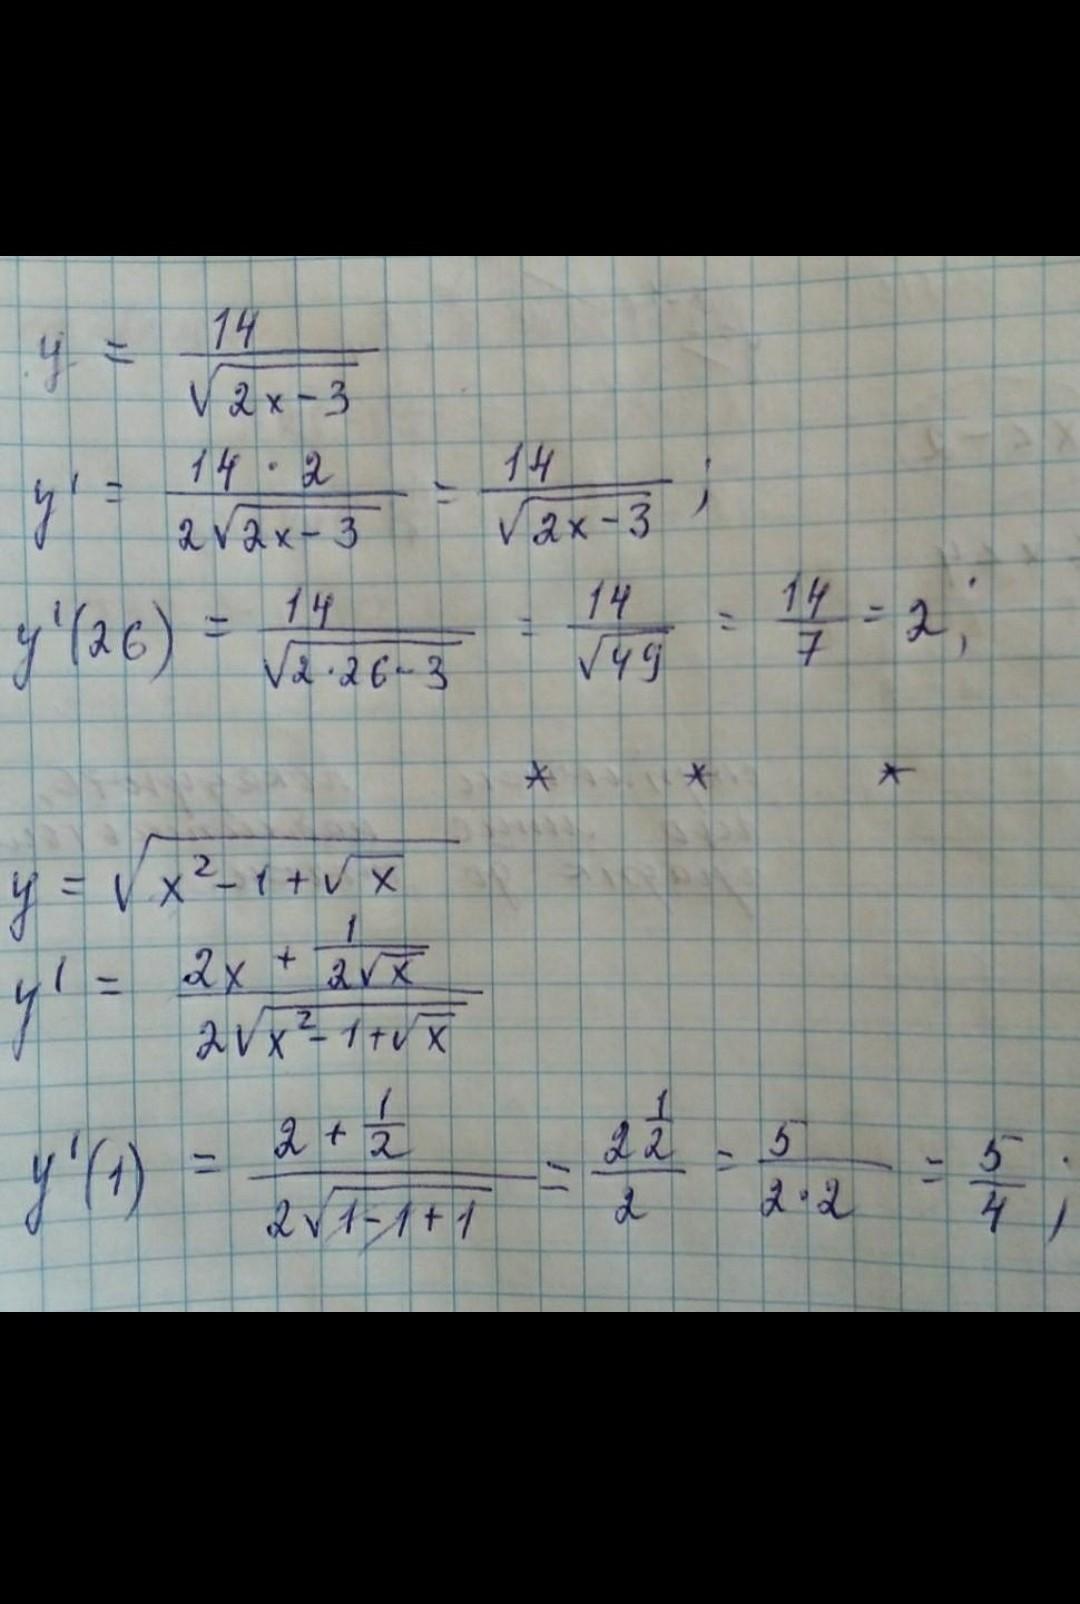 y = 14/√(2x-3)
y' = (14 · 2)/(2√(2x-3)) = 14/√(2x-3) ;
y'(26) = 14/√(2·26-3) = 14/√49 = 14/7 = 2 ;
* * *
y = √(x²-1+√x)
y' = (2x + 1/(2√x))/(2√(x²-1+√x))
y'(1) = (2 + 1/2)/(2√(1-1+1)) = (2 1/2)/2 = 5/(2·2) = 5/4 ;